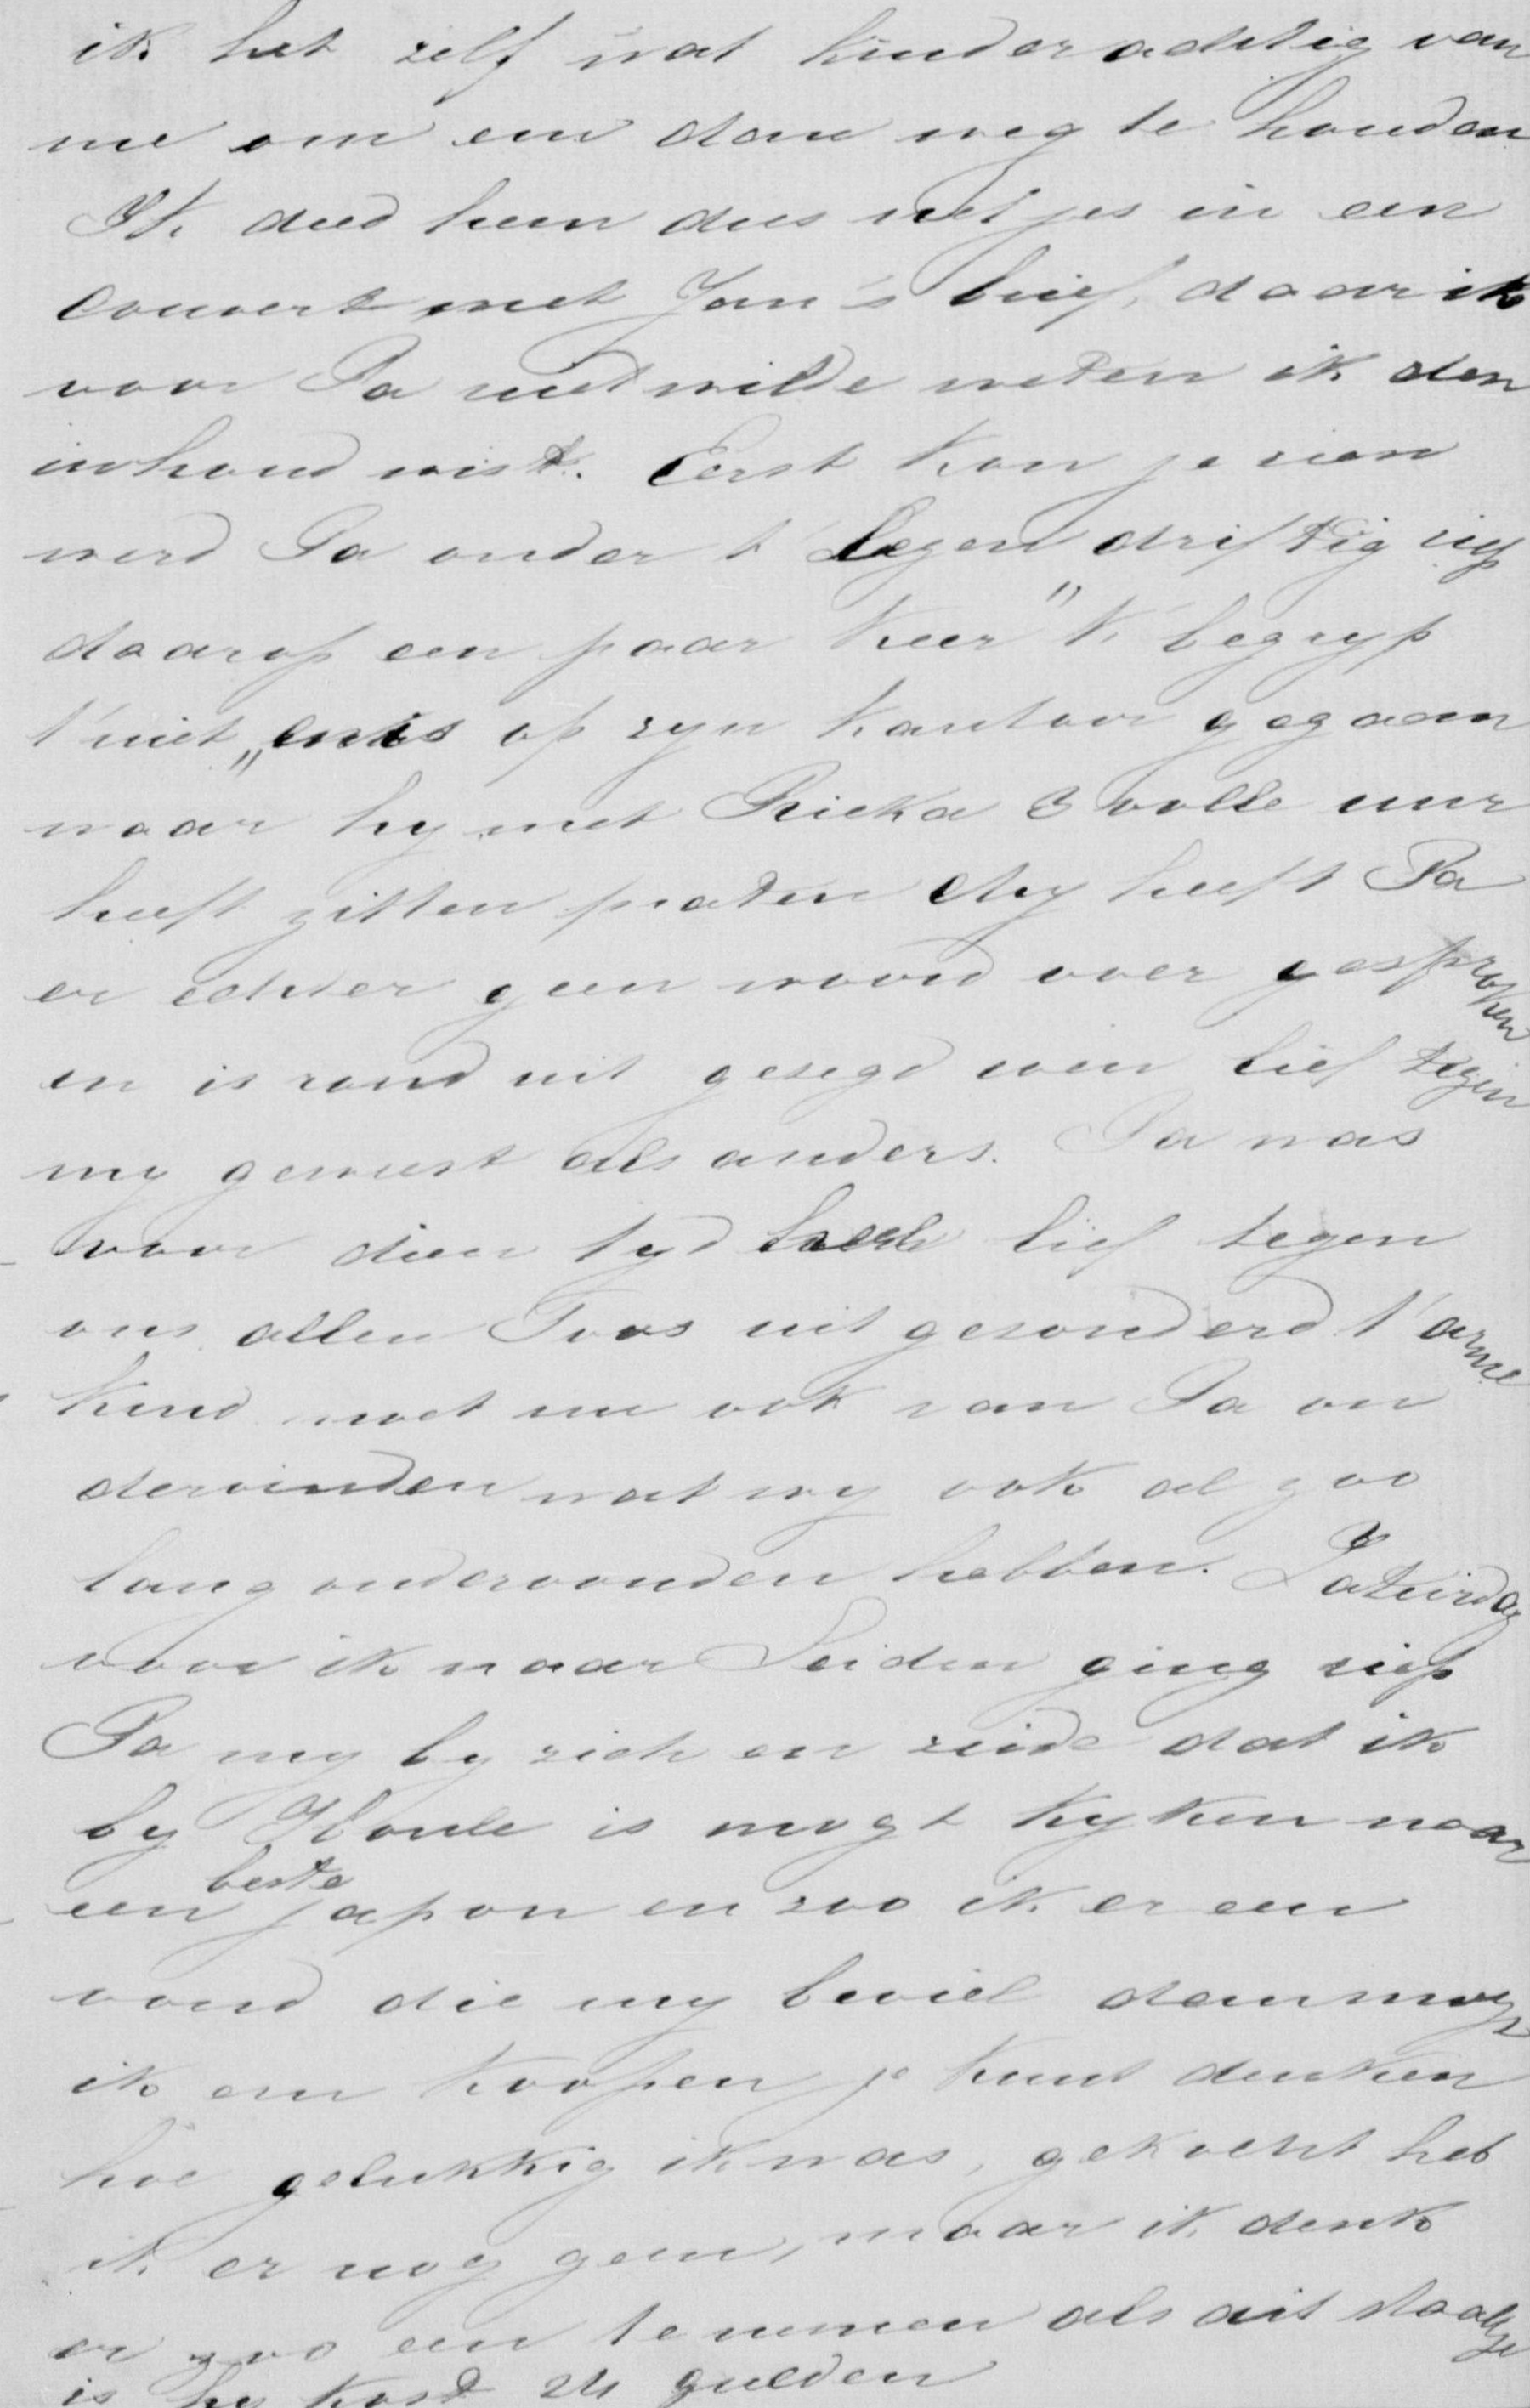 ik het zelf wat kinderachtig van
me om em dan weg te houden
Ik deed hem dus netjes in een
couvert met Jan's brief, daar ik
voor Pa niet wilde weten ik den
inhoud wist. Eerst kon je zien
werd Pa onder t' lezen driftig riep
daarop een paar keer "k' begryp
t' niet" en is op zyn kantoor gegaan
waar hy met Rieka 3 volle uur
heeft zitten praten My heeft Pa
er echter geen woord over gesproken
en is rond uit gezegd even lief tegen
my geweest als anders. Pa was
voor dien tyd heel lief tegen
ons allen Toos uitgezonderd t' arme
kind moet nu ook van Pa on
dervinden wat wy ook al zoo
lang ondervonden hebben. Zaturdag
voor ik naar Leiden ging riep
Pa my by zich en zeide dat ik
by is mogt kyken naar
een beste japon en zoo ik er een
vond die my beviel dan mogt
ik em koopen je kunt denken
hoe gelukkig ik was, gekocht heb
ik er nog geen, maar ik denk
er zoo een te nemen als dit staaltje
is hy kost 24 gulden